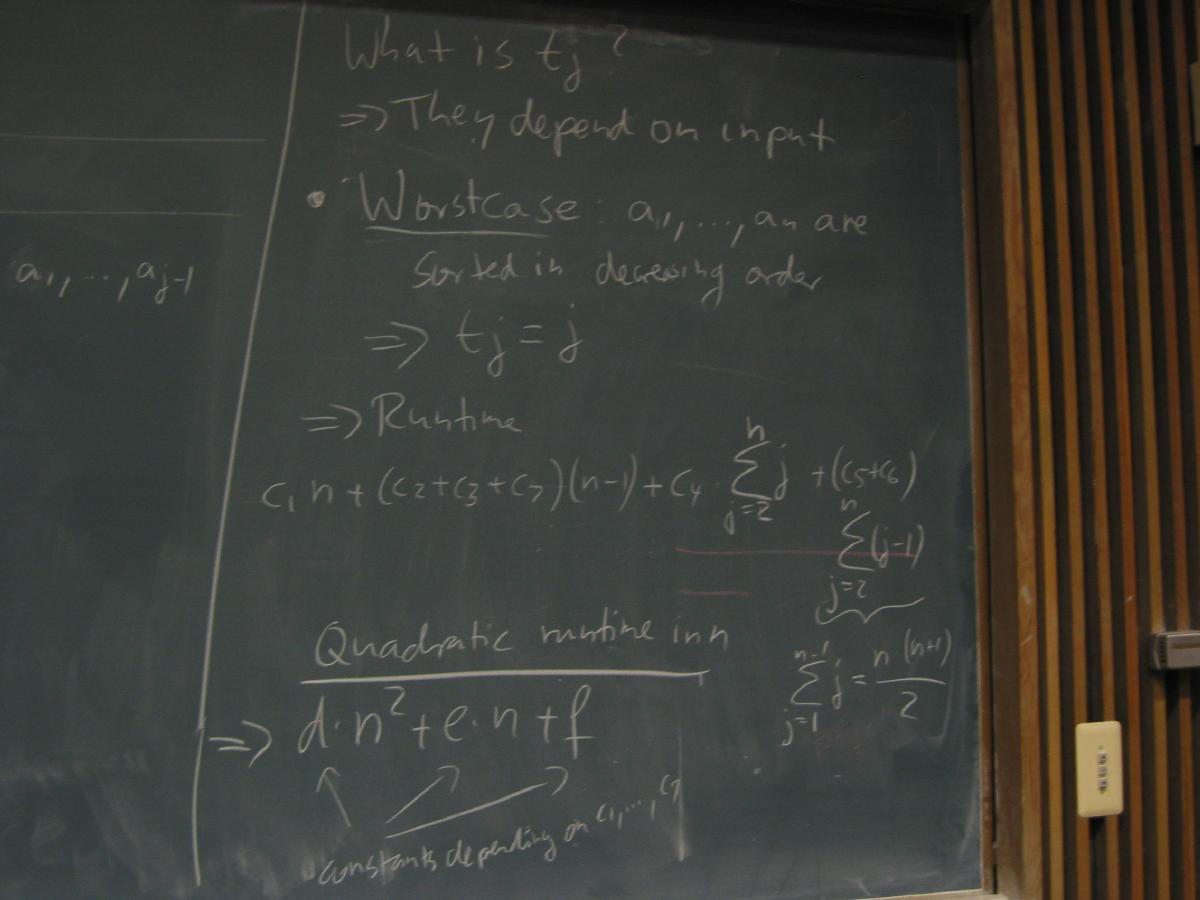 a₁, ..., aⱼ₋₁
What is tⱼ?
=> They depend on input
• Worstcase: a₁, ..., aₙ are
sorted in decreasing order
=> tⱼ = j
=> Runtime
c₁ n + (c₂+c₃+c₇)(n-1) + c₄ · ∑_{j=2}^{n} j + (c₅+c₆)
∑_{j=2}^{n} (j-1)
∑_{j=1}^{n-1} j = n·(n+1)/2
Quadratic runtime in n
=> d·n² + e·n + f
constants depending on c₁, ..., c₇